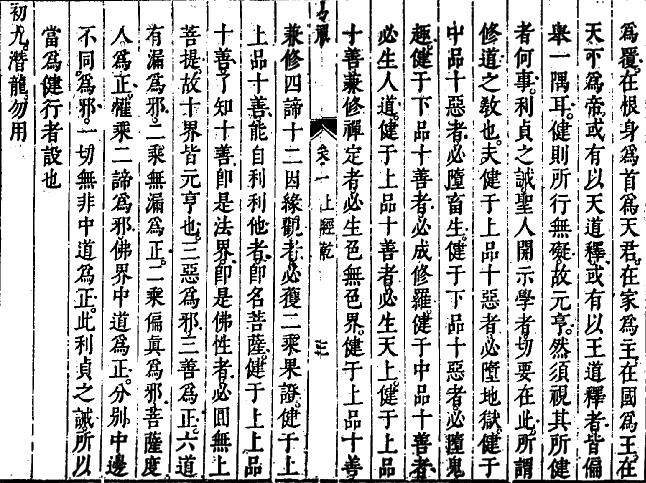 為覆。在根身為首為天君。在家為主。在國為王。在
天下為帝。或有以天道釋。或有以王道釋者。皆偏
舉一隅耳。健則所行無礙。故元亨。然須視其所健
者何事。利貞之誡。聖人開示學者切要在此。所謂
修道之教也。夫健于上品十惡者。必墮地獄。健于
中品十惡者。必墮畜生。健于下品十惡者。必墮鬼
趣。健于下品十善者。必成修羅。健于中品十善者。
必生人道。健于上品十善者。必生天上。健于上品
十善兼修禪定者。必生色無色界。健于上品十善
卷一 上經乾
兼修四諦十二因緣觀者。必獲二乘果證。健于上
上品十善。能自利利他者。即名菩薩。健于上上品
十善。了知十善即是法界。即是佛性者。必圓無上
菩提。故十界皆元亨也。三惡為邪。三善為正。六道
有漏為邪。二乘無漏為正。二乘偏真為邪。菩薩度
人為正。權乘二諦為邪。佛界中道為正。分別中邊
不同為邪。一切無非中道為正。此利貞之誡。所以
當為健行者設也
初九。潛龍勿用